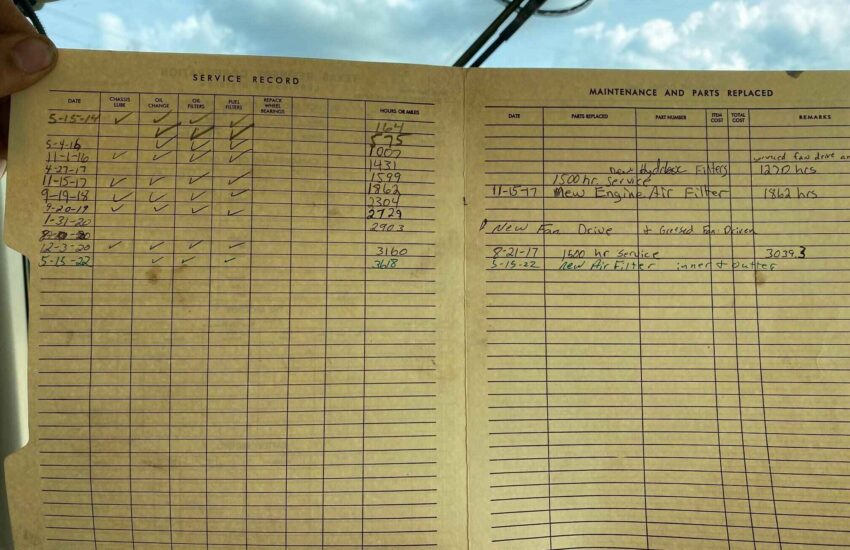 SERVICE RECORD
DATE CHASSIS LUBE OIL CHANGE OIL FILTERS FUEL FILTERS REPACK WHEEL BEARINGS HOURS OR MILES
5-15-14 ✓ ✓ ✓ ✓ 164
✓ ✓ ✓ 575
5-4-16 ✓ ✓ ✓ 1007
11-1-16 ✓ ✓ ✓ ✓ 1431
4-27-17 1599
11-15-17 ✓ ✓ ✓ ✓ 1862
9-19-18 ✓ ✓ ✓ ✓ 2304
9-20-19 ✓ ✓ ✓ ✓ 2729
1-31-20 2903
12-3-20 ✓ ✓ ✓ ✓ 3160
5-15-22 ✓ ✓ ✓ 3618
MAINTENANCE AND PARTS REPLACED
DATE PARTS REPLACED PART NUMBER ITEM COST TOTAL COST REMARKS
fan drive
new Hydraulic Filters 1270 hrs
1500 hr service
11-15-17 New Engine Air Filter 1862 hrs
New Fan Drive & Greased Fan Driven
8-21-17 1500 hr service 3039.3
5-15-22 new Air Filter inner & outter